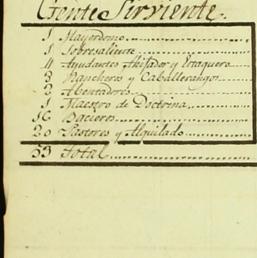 Gente Sirviente.
1 Mayordomo
1 Sobresaliente
4 Ayudantes Ahijador y Estaquero
3 Rancheros y Caballerango
2 Ahentadores
1 Maestro de Doctrina
16 Bacieros
20 Pastores y Alquilado
53 Total